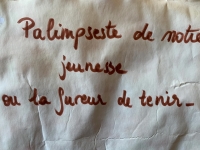 Palimpseste de notre
jeunesse
ou la fureur de tenir_